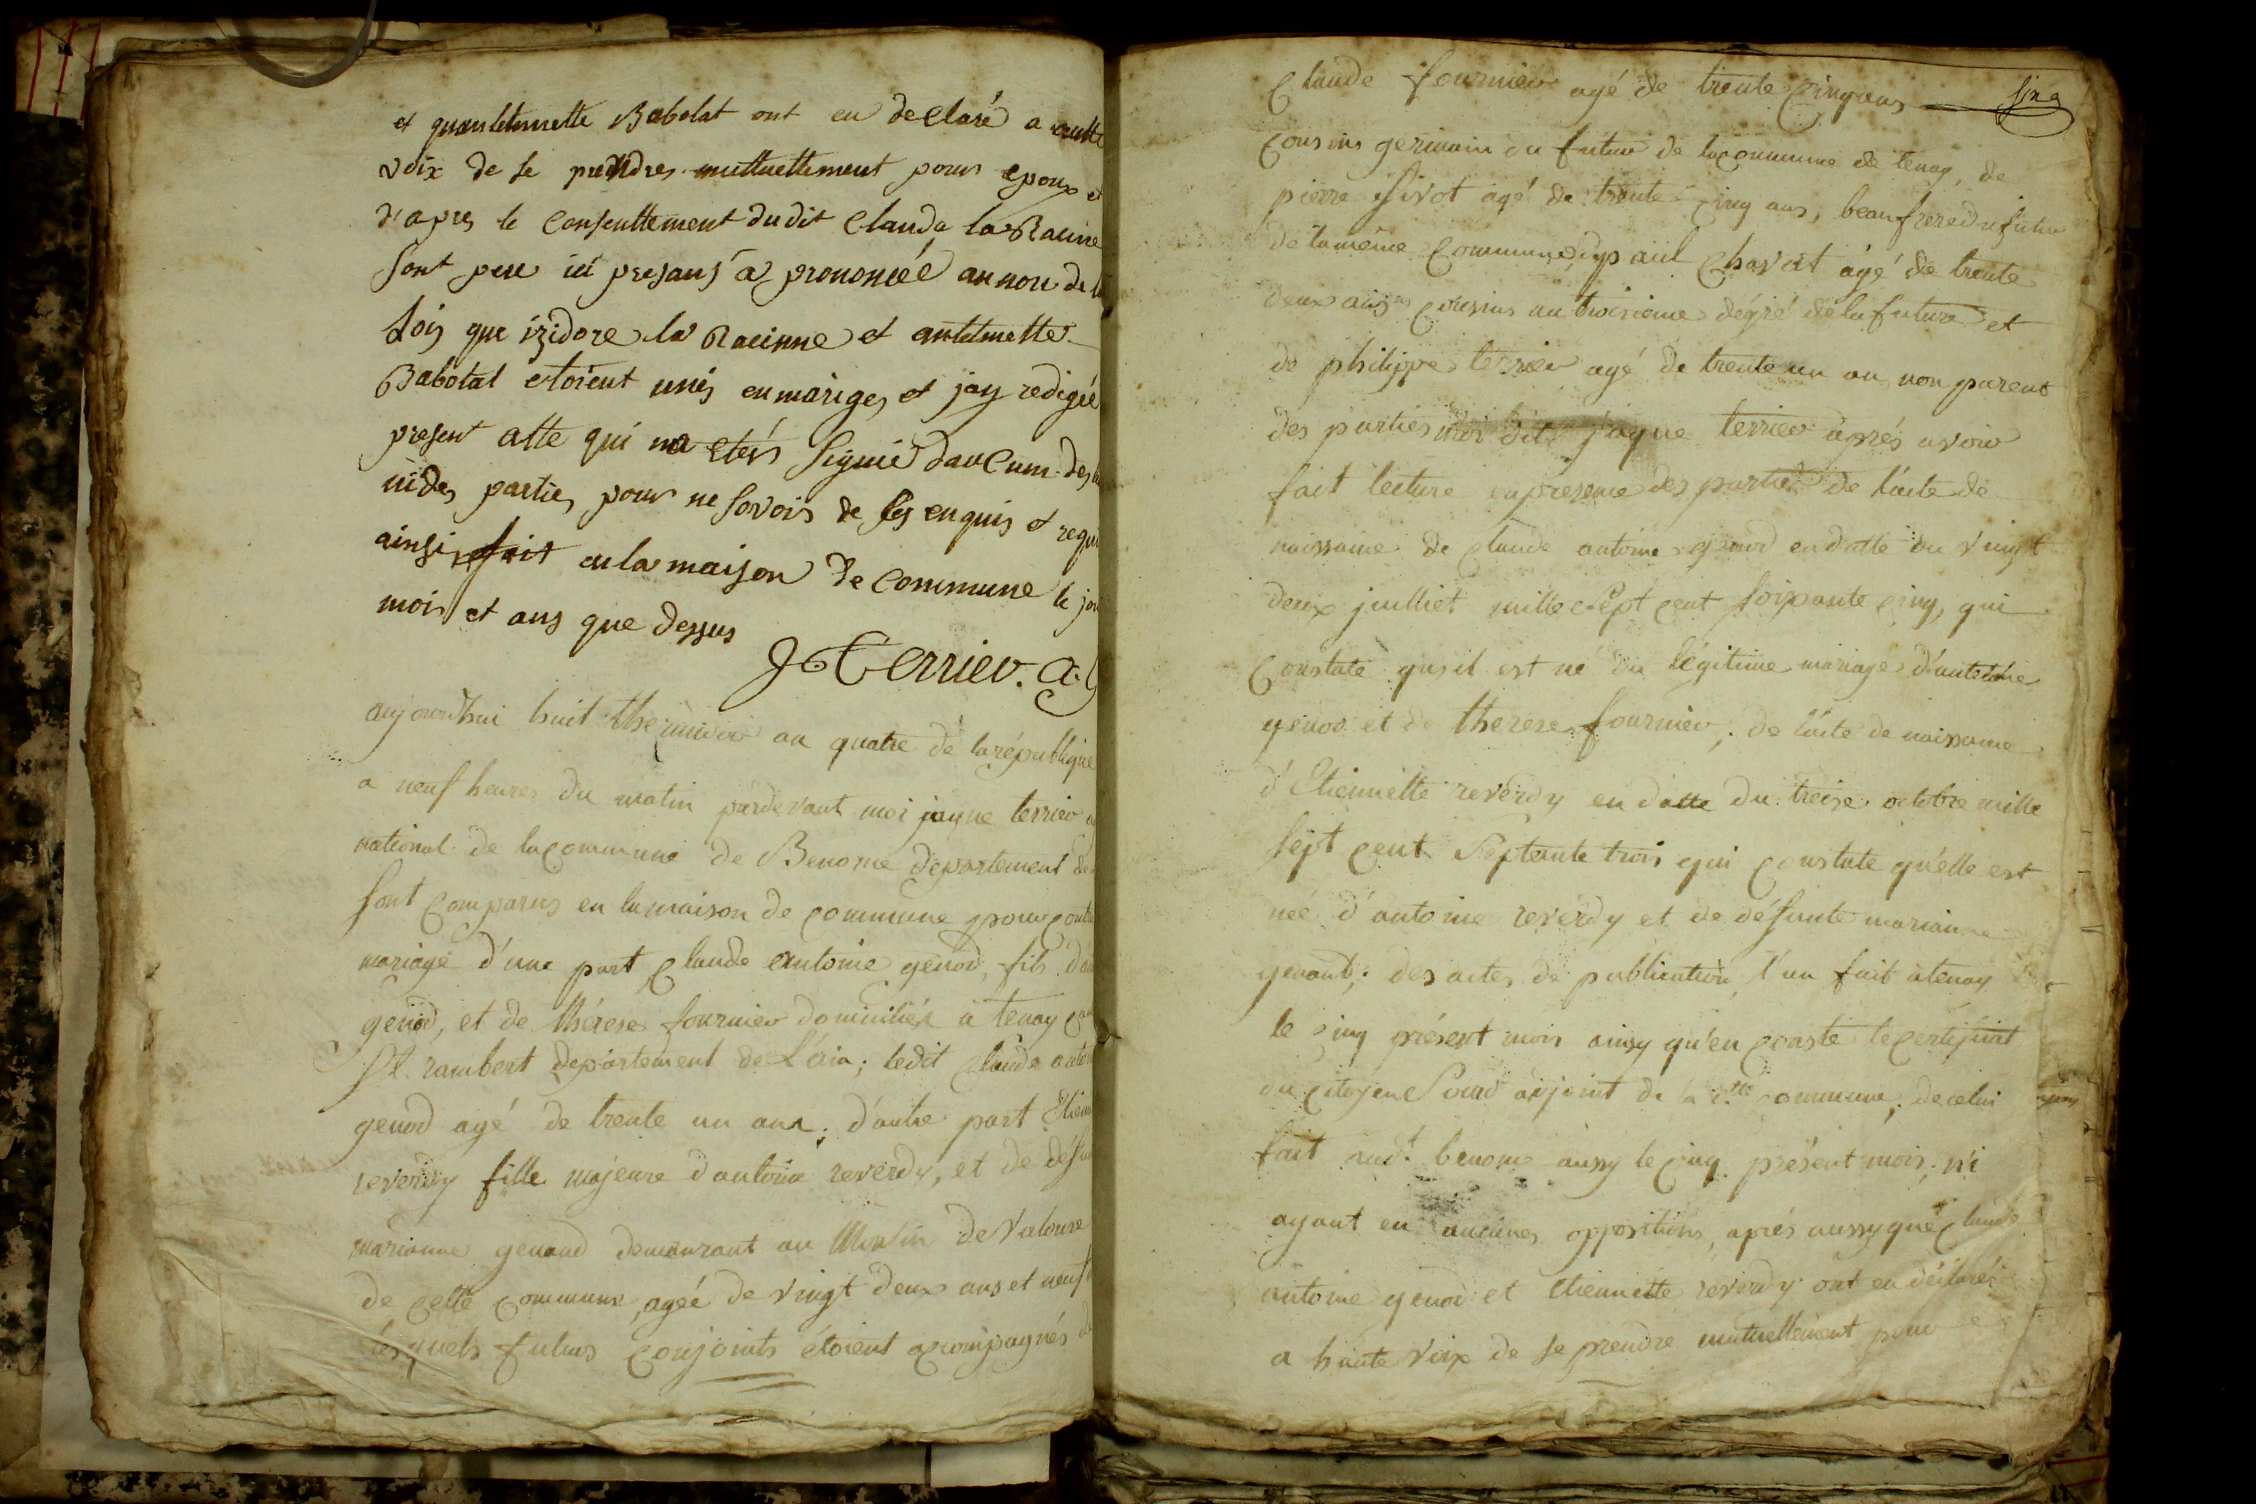 et quantelmette Babolat ont eu declaré a autte
voix de se prendres muttuettement pour epoux et
d'apres le consenttement du dit Claude la Racine
sont pere ici presans a prononcéé au non de la
Lois que izidore la Racinne et antelmette
Babolat etoient unis en mariges et jay redigéé
present atte qui na etés signié daucum des
ni des parties pour ne savoir de ses enquis et requi
ainsi fait en la maison de commune le jou
mois et ans que dessus
J Terrier. a.
aujourdhui huit thermidor an quatre de la républiqne
a neuf heures du matin pardevant moi jaque terrier
national de la commune de Benonce departement de
sont comparus en la maison de commune pour contr
mariage d'une part Claude antoine genod, fils d'an
genod, et de thérese fournier domiciliés a tenay can
St. rambert departement de L'ain; ledit Claude antoi
genod agé de trente un ans; d'autre part Etienn
reverdy fille majeure d'antoine reverdy, et de défun
marianne genaud demeurant au Moulin de valoure
de cette commune, agée de vingt deux ans et neuf
lesquels futurs conjoints étoient acompagnés de
Claude fournier agé de trente cinq ans
cousins germain du futur de la commune de tenay, de
pierre sivot agé de trente cinq ans, beaufrere du futur
de la même commune, de paul Chavat agé de trente
deux ans cousins au troisieme dégré de la future et
de philippe terrier agé de trente un an non parent
des parties moi dit jaque terrier après avoir
fait lecture en presence des parties de l'acte de
naissance de Claude antoine genod en datte du vingt
deux juilliet mille sept cent soixante cinq, qui
constate qu'il est né du légitime mariage d'antelme
genod et de therese fournier; de l'acte de naissance
d'Etiennette reverdy en datte du treize octobre mille
sept cent septante trois qui constate qu'elle est
née d'antoine reverdy et de défunte marianne
genaud; des actes de publication l'un fait à tenay
le cinq présent mois ainsy qu'en conste le certificat
du citoyen Sourd adjoint de la dte commune; de celui
fait aud.t benonce aussy le cinq présent mois; n'i
ayant eu aucunes oppositions, après aussy que claude
antoine genod et Etiennette reverdy ont eu déclaré
a haute voix de se prendre mutuellement pour